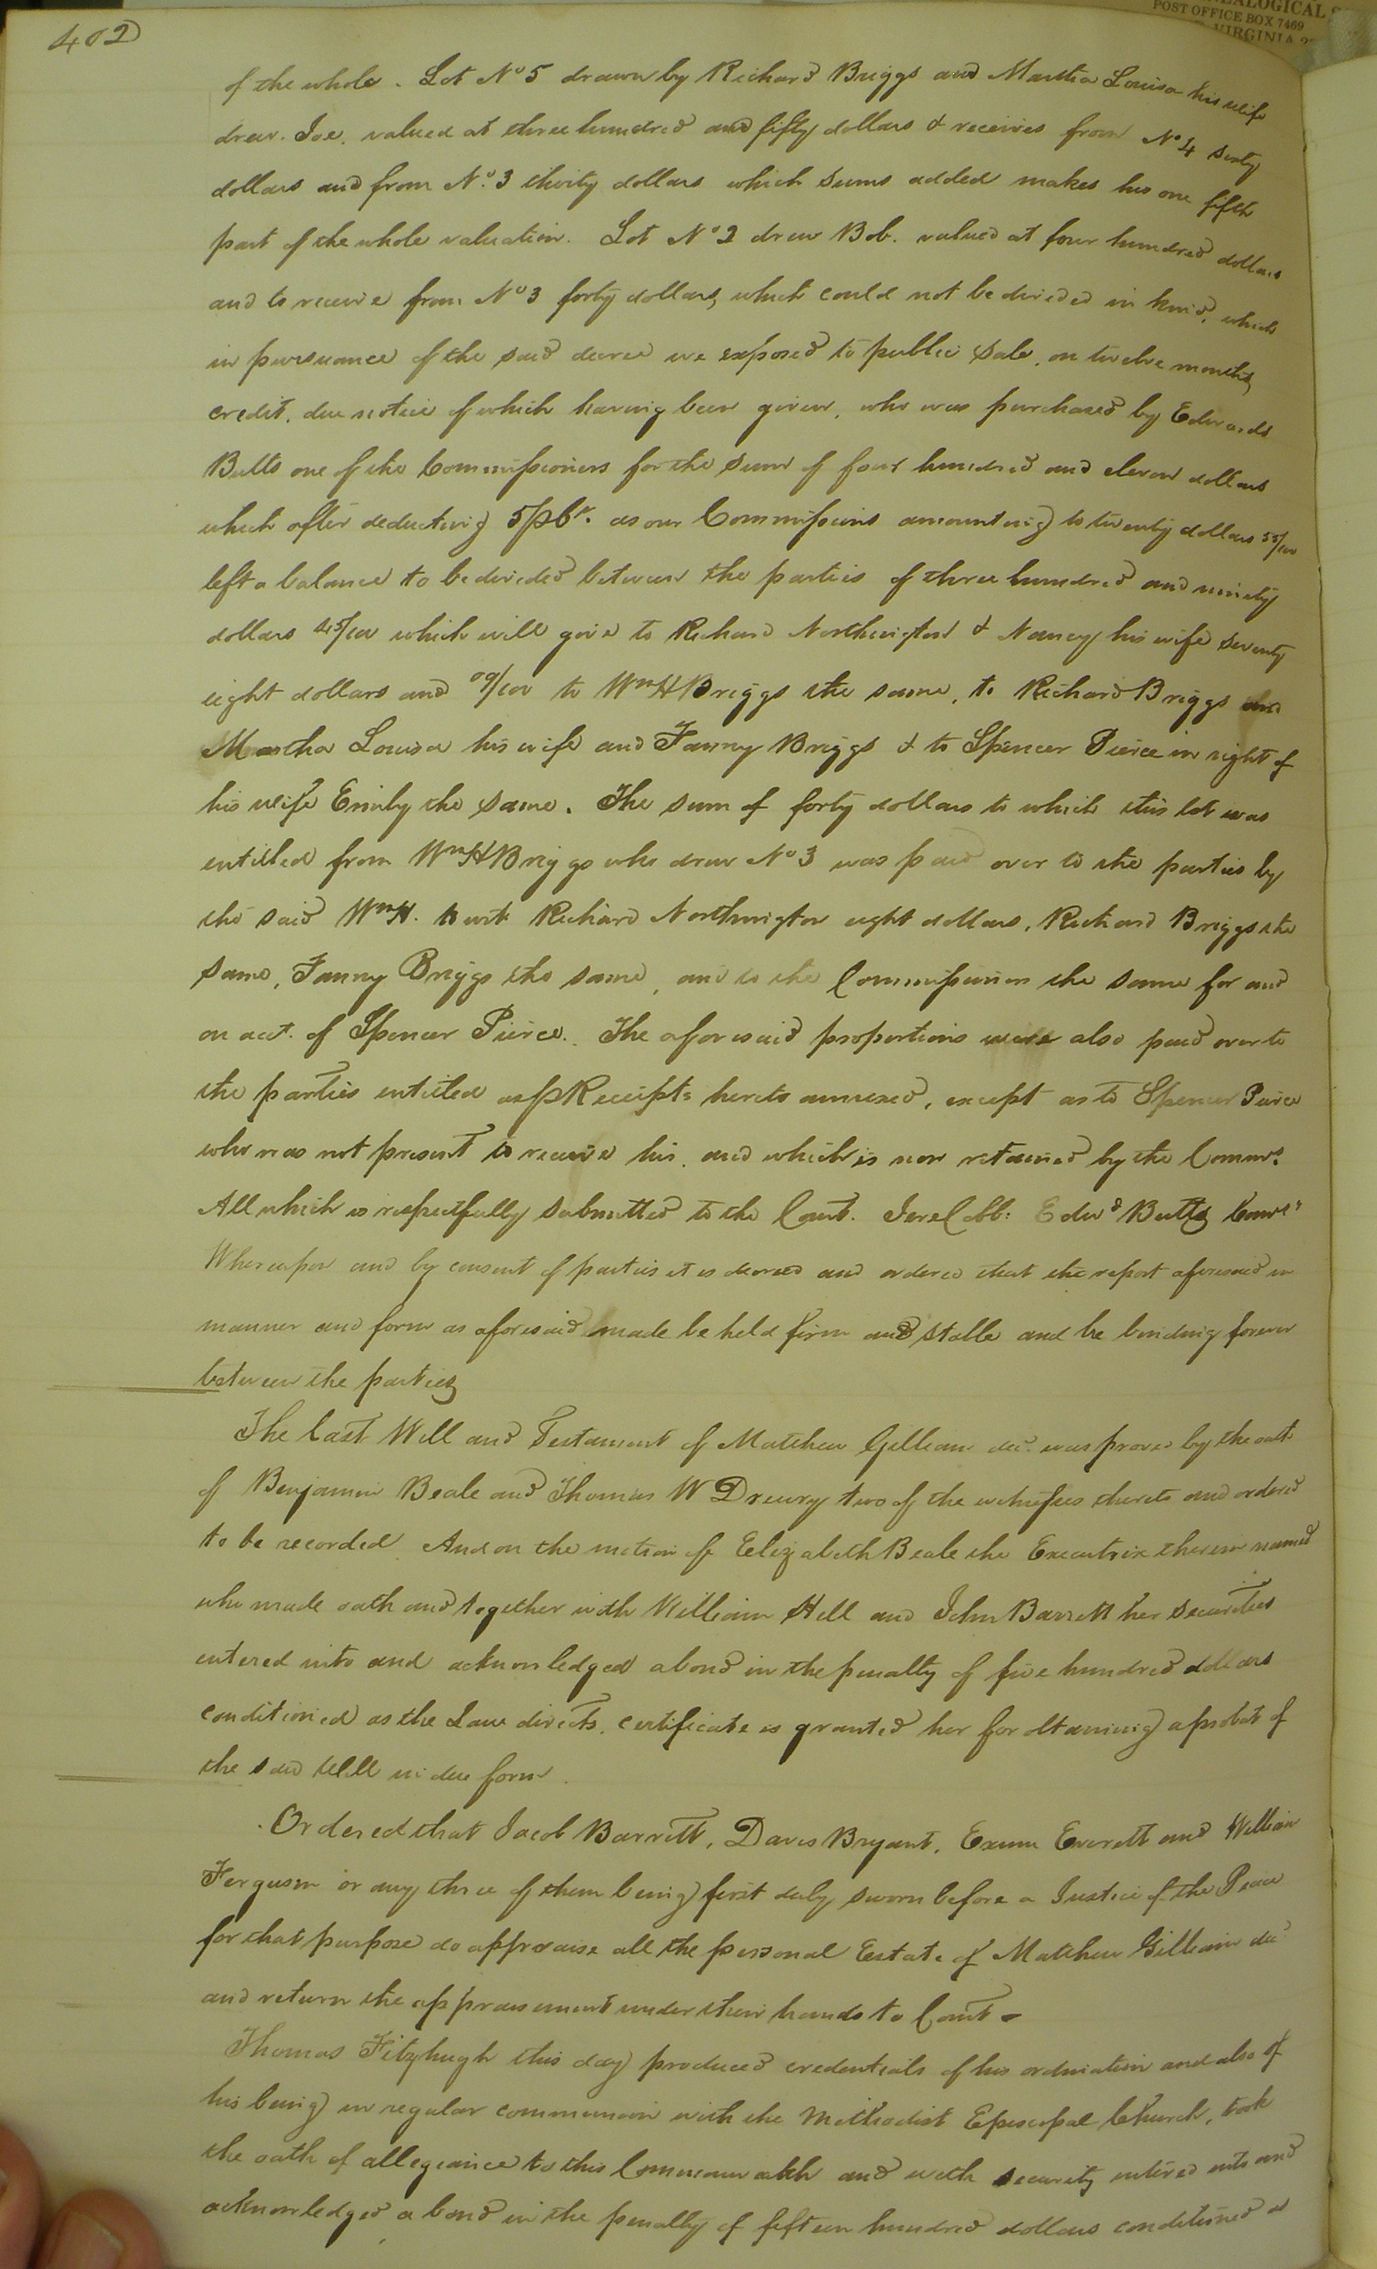 402
GENEALOGICAL S
POST OFFICE BOX 7469
VIRGINIA
of the whole. Lot No 5 drawn by Richard Briggs and Martha Louisa his wife
drew. Joe. valued at three hundred and fifty dollars & receives from No 4 sixty
dollars and from No. 3 thirty dollars which sums added makes his one fifth
part of the whole valuation. Lot No 2 drew Bob. valued at four hundred dollars
and to receive from No 3 forty dollars, which could not be divided in kind, which
in pursuance of the said decree we exposed to public sale, on twelve months,
credit, due notice of which having been given, who was purchased by Edwards
Butts one of the Commissioners for the sum of four hundred and eleven dollars
which after deducting 5 pCt. as our Commissions amounting to twenty dollars 55/100
left a balance to be divided between the parties of three hundred and ninety
dollars 45/100 which will give to Richard Northington & Nancy his wife seventy
eight dollars and 09/100 to Wm H Briggs the same, to Richard Briggs and
Martha Louisa his wife and Fanny Briggs & to Spencer Pierce in right of
his wife Emily the same. The sum of forty dollars to which this lot was
entitled from Wm H Briggs who drew No 3 was paid over to the parties by
the said Wm H. to wit Richard Northington eight dollars, Richard Briggs the
same, Fanny Briggs the same, and to the Commissioners the same for and
on act. of Spencer Pierce. The aforesaid proportions were also paid over to
the parties entitled as p Receipts hereto annexed, except as to Spencer Pierce
who was not present to receive his, and which is now retained by the Commrs.
All which is respectfully submitted to the Court. Jere Cobb: Edwd Butts Comrs
Whereupon and by consent of parties it is decreed and ordered that the report aforesaid in
manner and form as aforesaid made be held firm and stable and be binding forever
between the parties
The last Will and Testament of Matthew Gilliam dec. was proved by the oath
of Benjamin Beale and Thomas W Drewry two of the witnesses thereto and ordered
to be recorded. And on the motion of Elizabeth Beale the Executrix therein named
who made oath and together with William Hill and John Barrett her securities
entered into and acknowledged a bond in the penalty of five hundred dollars
conditioned as the Law directs, certificate is granted her for obtaining a probat of
the said Will in due form.
Ordered that Jacob Barrett, Davis Bryant, Exum Everett and William
Ferguson or any three of them being first duly sworn before a Justice of the Peace
for that purpose do appraise all the personal Estate of Matthew Gilliam dec
and return the appraisement under their hands to Court -
Thomas Fitzhugh this day produced credentials of his ordination and also of
his being in regular communion with the Methodist Episcopal Church, took
the oath of allegiance to this Commonwealth and with security entered into and
acknowledged a bond in the penalty of fifteen hundred dollars conditioned as